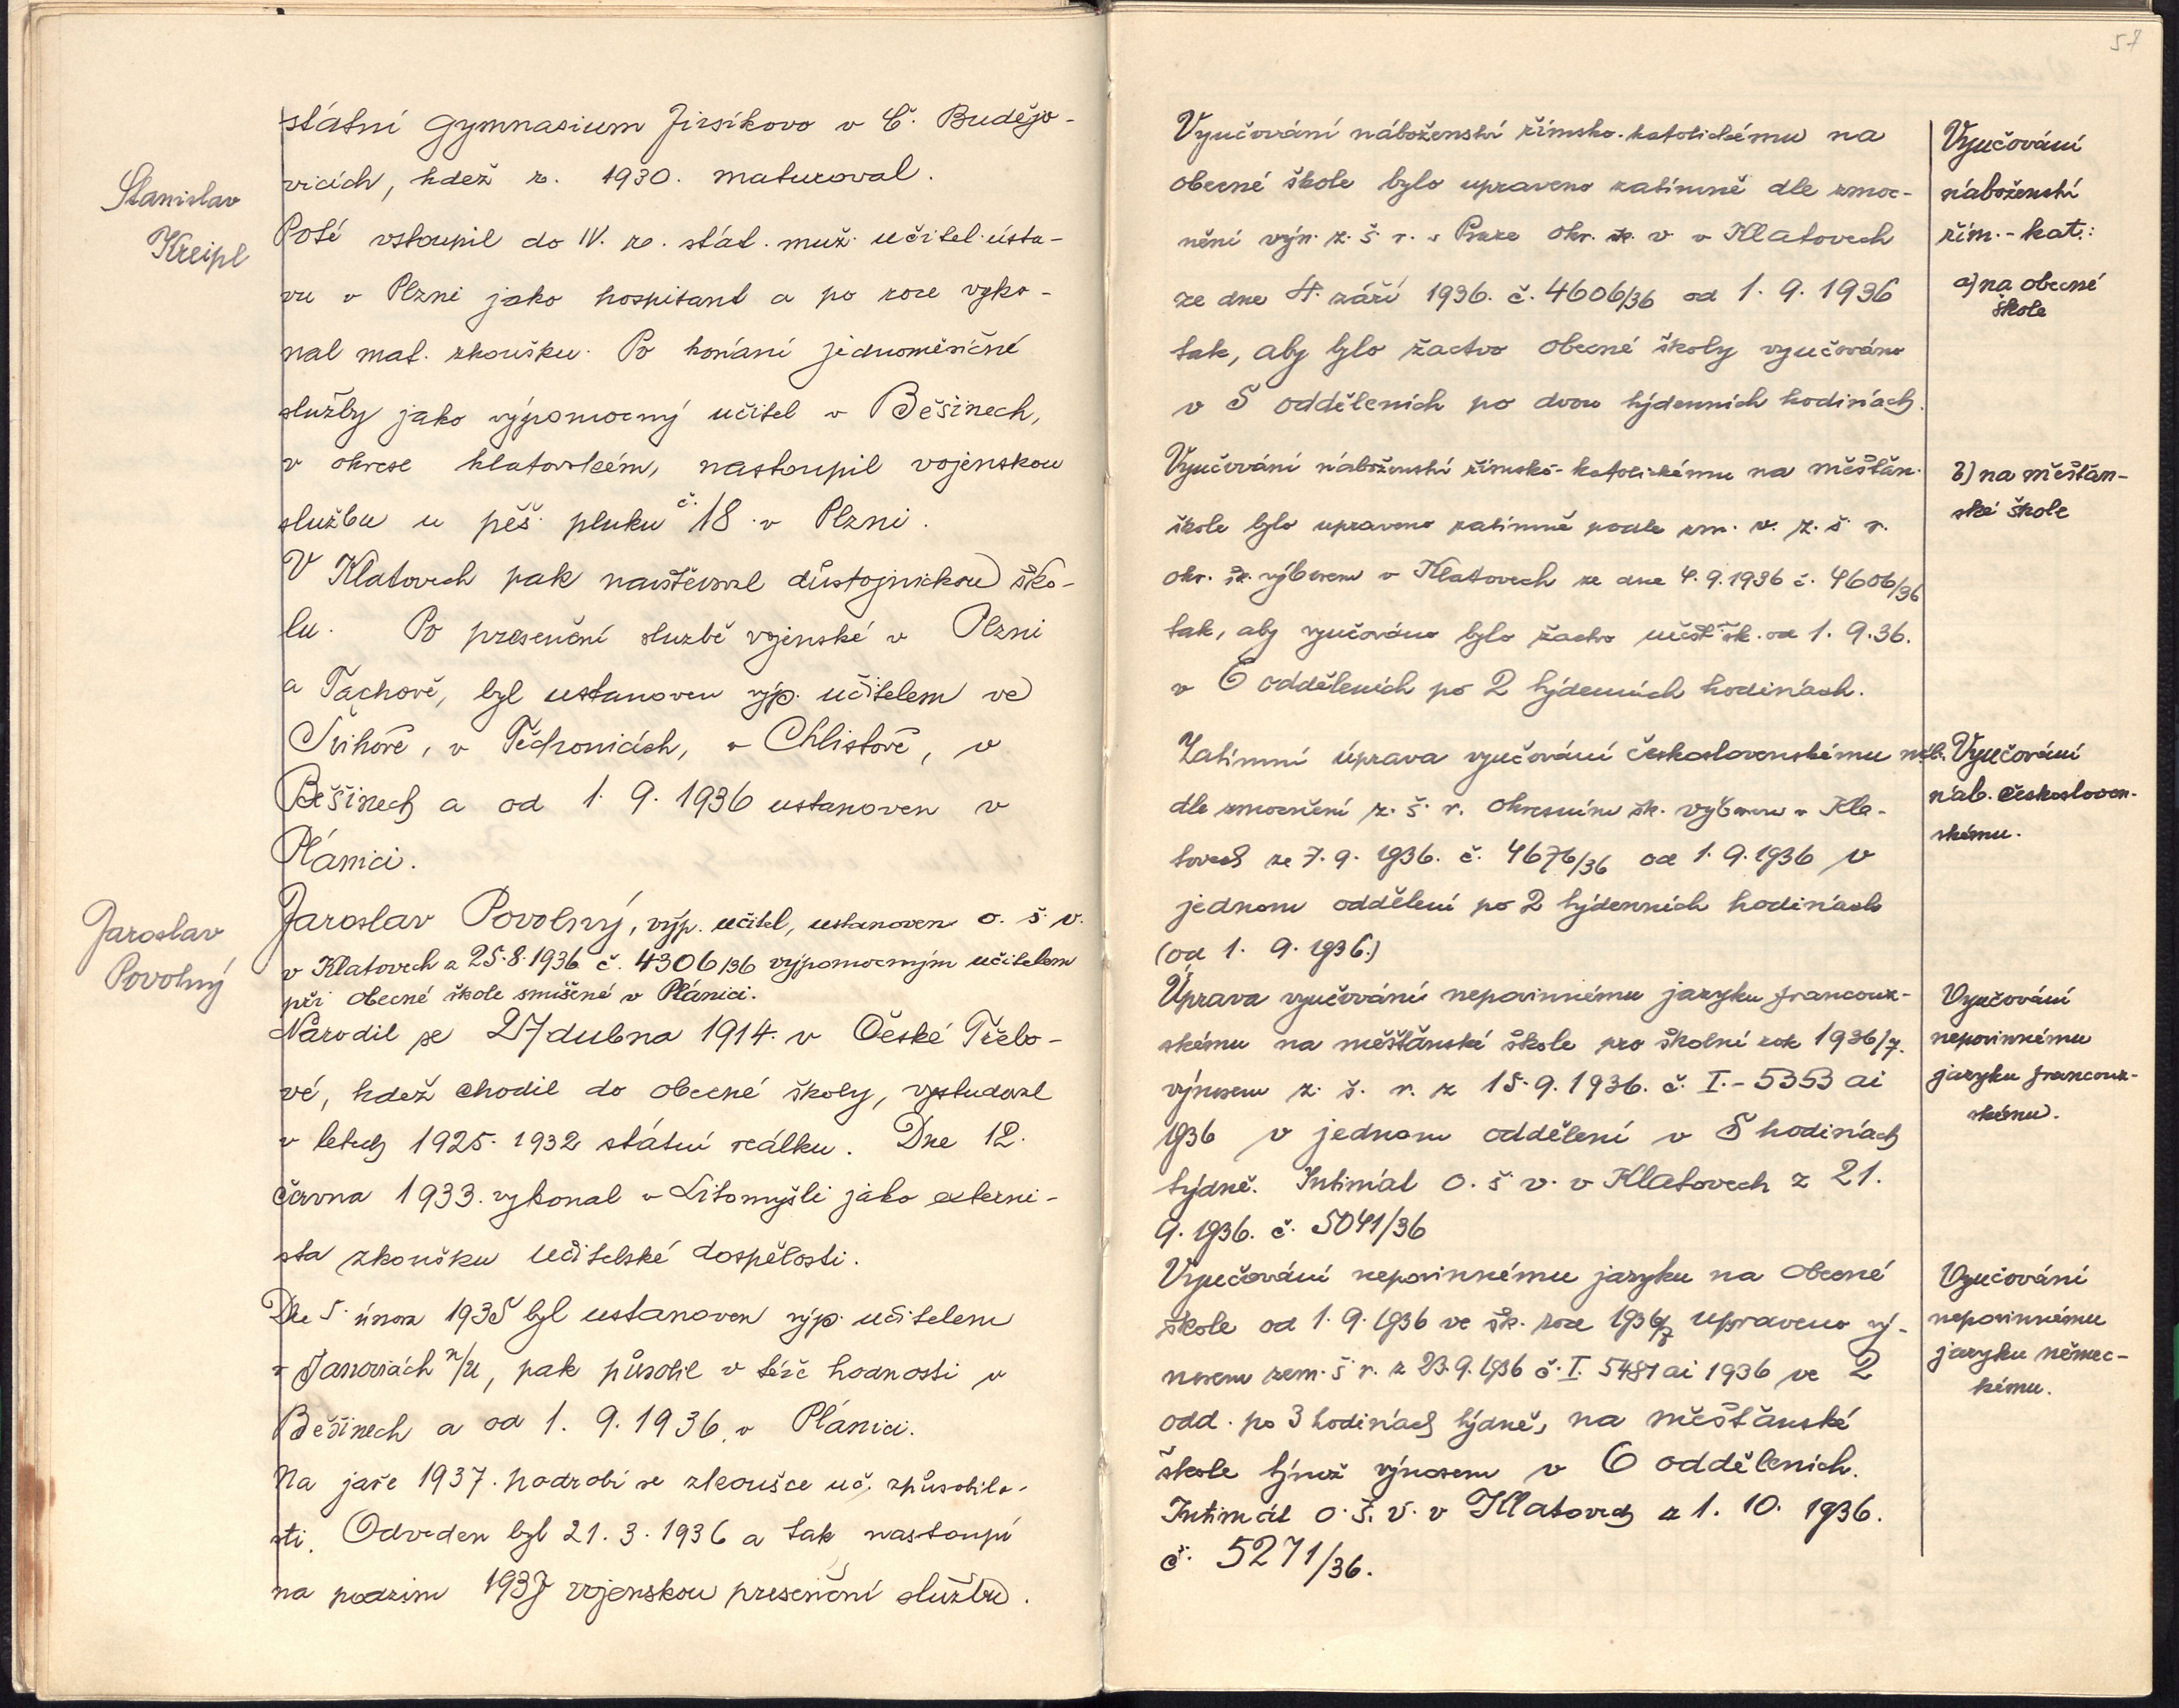 Stanislav
Kreipl
státní gymnasium Jirsíkovo v Č. Budějo-
vicích, kdež r. 1930. maturoval.
Poté vstoupil do IV. ro. stát. muž. učitel. ústa-
vu v Plzni jako hospitant a po roce vyko-
nal mat. zkoušku. Po konání jednoměsíčné
služby jako výpomocný učitel v Běšinech,
v okrese klatovském, nastoupil vojenskou
službu u pěš. pluku č. 18. v Plzni.
V Klatovech pak navštěvoval důstojnickou ško-
lu. Po presenční službě vojenské v Plzni
a Tachově, byl ustanoven výp. učitelem ve
Švihově, v Těchonicích, v Chlistově, v
Běšinech a od 1. 9. 1936 ustanoven v
Plánici.
Jaroslav
Povolný
Jaroslav Povolný, výp. učitel, ustanoven o. š. v.
v Klatovech z 25. 8. 1936 č. 4306/36 výpomocným učitelem
při obecné škole smíšené v Plánici.
Narodil se 27 dubna 1914. v České Třebo-
vé, kdež chodil do obecné školy, vystudoval
v letech 1925. 1932 státní reálku. Dne 12.
června 1933. vykonal v Litomyšli jako externi-
sta zkoušku učitelské dospělosti.
Dne 5. února 1935 byl ustanoven výp. učitelem
v Janovicích n/U, pak působil v téže hodnosti v
Běšinech a od 1. 9. 1936 v Plánici.
Na jaře 1937. podrobí se zkoušce uč. způsobilo-
sti. Odveden byl 21. 3. 1936 a tak nastoupí
na podzim 1937 vojenskou presenční službu.
57
Vyučování náboženství římsko-katolickému na
obecné škole bylo upraveno zatímně dle zmoc-
nění výn. z. š. r. v Praze okr. šk. v. v Klatovech
ze dne 4. září 1936. č. 4606/36 od 1. 9. 1936
tak, aby bylo žactvo obecné školy vyučováno
v 5 odděleních po dvou týdenních hodinách.
Vyučování
náboženství
řím.-kat.:
a) na obecné
škole
Vyučování náboženství římsko-katolickému na měšťan.
škole bylo upraveno zatímně podle zm. v. z. š. r.
okr. šk. výborem v Klatovech ze dne 4. 9. 1936 č. 4606/36
tak, aby vyučováno bylo žactvo měšť. šk. od 1. 9. 36.
v 6 odděleních po 2 týdenních hodinách.
b) na měšťan-
ské škole
Zatímní úprava vyučování československému náb.
dle zmocnění z. š. r. okresním šk. výborem v Kla-
tovech ze 7. 9. 1936. č. 4676/36 od 1. 9. 1936 v
jednom oddělení po 2 týdenních hodinách
(od 1. 9. 1936.)
Vyučování
náb. českosloven-
skému.
Úprava vyučování nepovinnému jazyku francouz-
skému na měšťanské škole pro školní rok 1936/7.
výnosem z. š. r. z 15. 9. 1936. č. I.-5353 ai
1936 v jednom oddělení v 5 hodinách
týdně. Intimát o. š. v. v Klatovech z 21.
9. 1936. č. 5041/36
Vyučování
nepovinnému
jazyku francouz-
skému.
Vyučování nepovinnému jazyku na obecné
škole od 1. 9. 1936 ve šk. roce 1936/7 upraveno vý-
nosem zem. š. r. z 23. 9. 1936 č. I. 5481 ai 1936 ve 2
odd. po 3 hodinách týdně, na měšťanské
škole týmž výnosem v 6 odděleních.
Intimát o. š. v. v Klatovech z 1. 10. 1936.
č. 5271/36.
Vyučování
nepovinnému
jazyku němec-
kému.